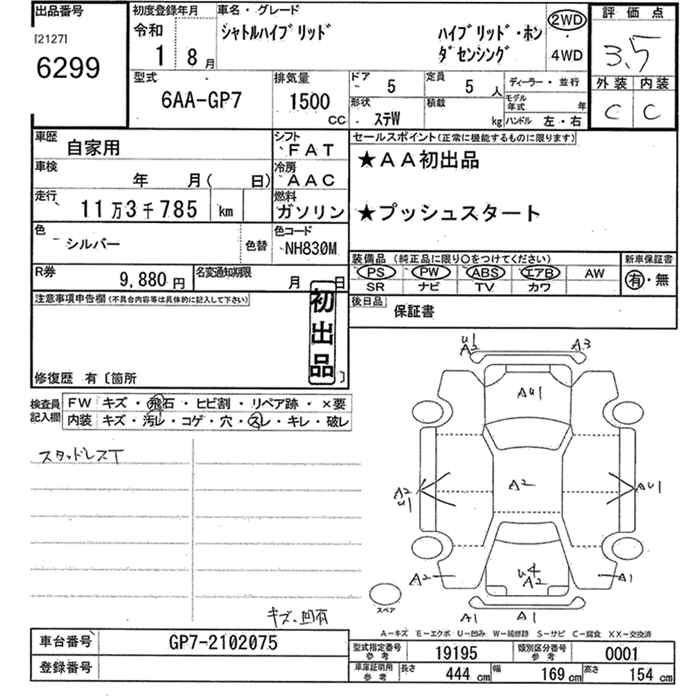 出品番号
[2127]
6299
初度登録年月
令和
1 8月
車名・グレード
シャトルハイブリッド
ハイブリッド・ホン
ダセンシング
2WD
4WD
評価点
3.5
外装 内装
C C
型式
6AA-GP7
排気量
1500
CC
ドア 5
定員 5人
形状 ステW
積載 kg
ディーラー・並行
モデル年式 年
ハンドル 左・右
車歴 自家用
シフト FAT
車検 年 月( 日)
冷房 AAC
走行 11万3千785 km
燃料 ガソリン
色 シルバー
色替
色コード NH830M
R券 9,880円
名変通知期限 月 日
セールスポイント(正常に機能するものに限ります)
★AA初出品
★プッシュスタート
装備品 (純正品に限り○をつけてください)
新車保証書
PS PW ABS エアB AW
SR ナビ TV カワ
有・無
後日品 保証書
注意事項申告欄(不具合内容等は具体的に記入して下さい)
初出品
修復歴 有〔箇所 〕
検査員記入欄
FW キズ・飛石・ヒビ割・リペア跡・×要
内装 キズ・汚レ・コゲ・穴・スレ・キレ・破レ
スタッドレスT
キズ・凹有
U1
A2
A3
AU1
A2
U1
A2
AU1
U4
A2
A2
A1
A1
A1
スペア
A-キズ E-エクボ U-凹み W-補修跡 S-サビ C-腐食 XX-交換済
車台番号 GP7-2102075
登録番号
型式指定番号参考 19195
類別区分番号参考 0001
車庫証明用参考 長さ 444 cm 幅 169 cm 高さ 154 cm